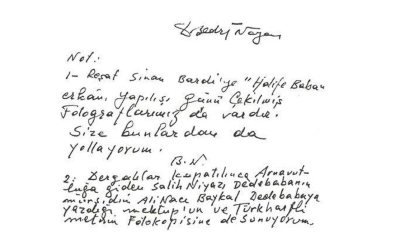 Dr Bedri Noyan
Not:
1- Reşat Sinan Bardi'ye "Halife Baban
erkânı yapılışı günü Çekilmiş
Fotograflarımız da vardır.
Size bunlardan da
yollayorum.
B.N.
2: Dergahlar kapatılınca Arnavut-
luğa giden Salih Niyazi Dedebabanın
mürşidim Ali Naci Baykal Dedebabaya
yazdığı mektup'un ve Türk harfli
metnin Fotokopisini de sunuyorum.